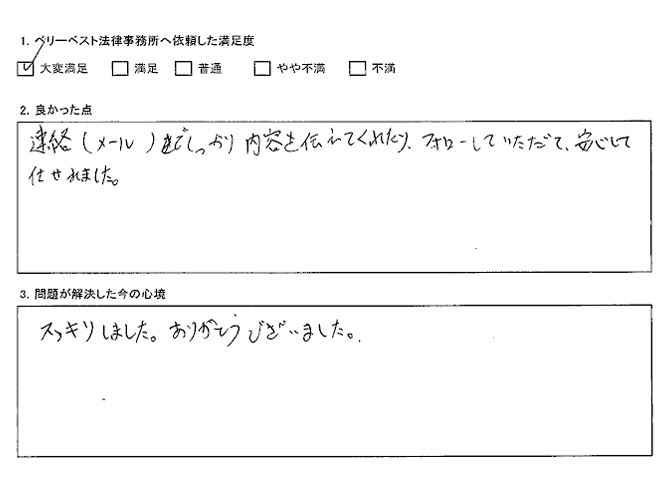 1. ベリーベスト法律事務所へ依頼した満足度
☑ 大変満足 □ 満足 □ 普通 □ やや不満 □ 不満
2. 良かった点
連絡（メール）などしっかり内容を伝えてくれたり、フォローしていただて、安心して
任せれました。
3. 問題が解決した今の心境
スッキリしました。ありがとうございました。